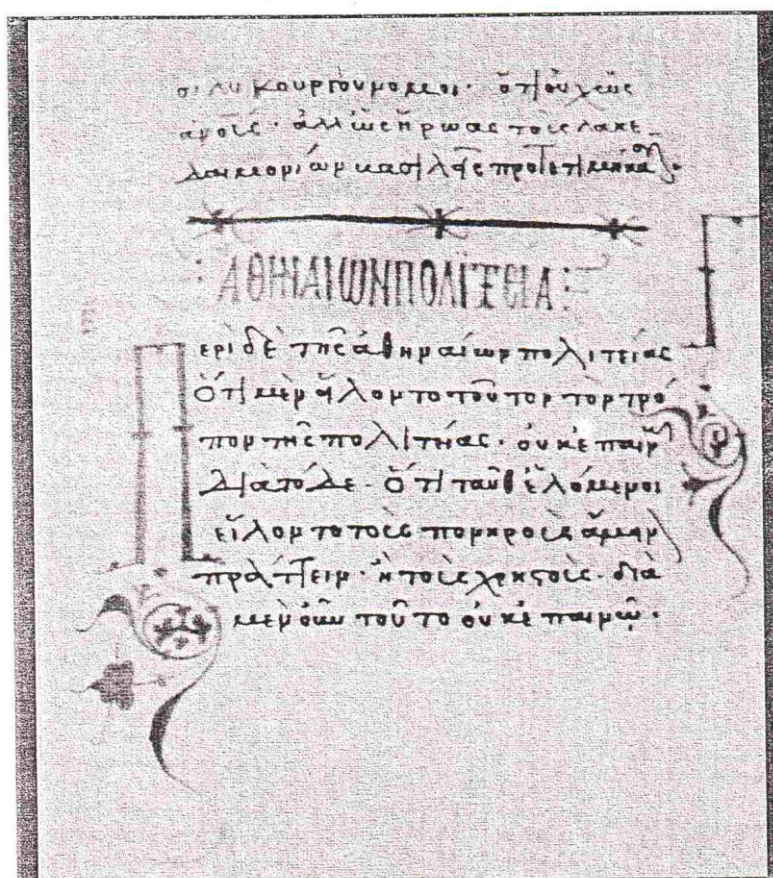 σι λυκούργου νόμοι· ὅτι οὐχ ὡς
ἀνοῖς· ἀλλ' ὡς ἥρωας τοὺς λακε
δαιμονίων βασιλεῖς προτετιμήκασι.
:ΑΘΗΝΑΙΩΝ ΠΟΛΙΤΕΙΑ:
Περὶ δὲ τῆς ἀθηναίων πολιτείας
ὅτι μὲν εἵλοντο τοῦτον τὸν τρό
πον τῆς πολιτείας· οὐκ ἐπαινῶ
διὰ τόδε· ὅτι ταῦθ' ἑλόμενοι
εἵλοντο τοὺς πονηροὺς ἄμεινον
πράττειν· ἢ τοὺς χρηστούς· διὰ
μὲν οὖν τοῦτο οὐκ ἐπαινῶ·